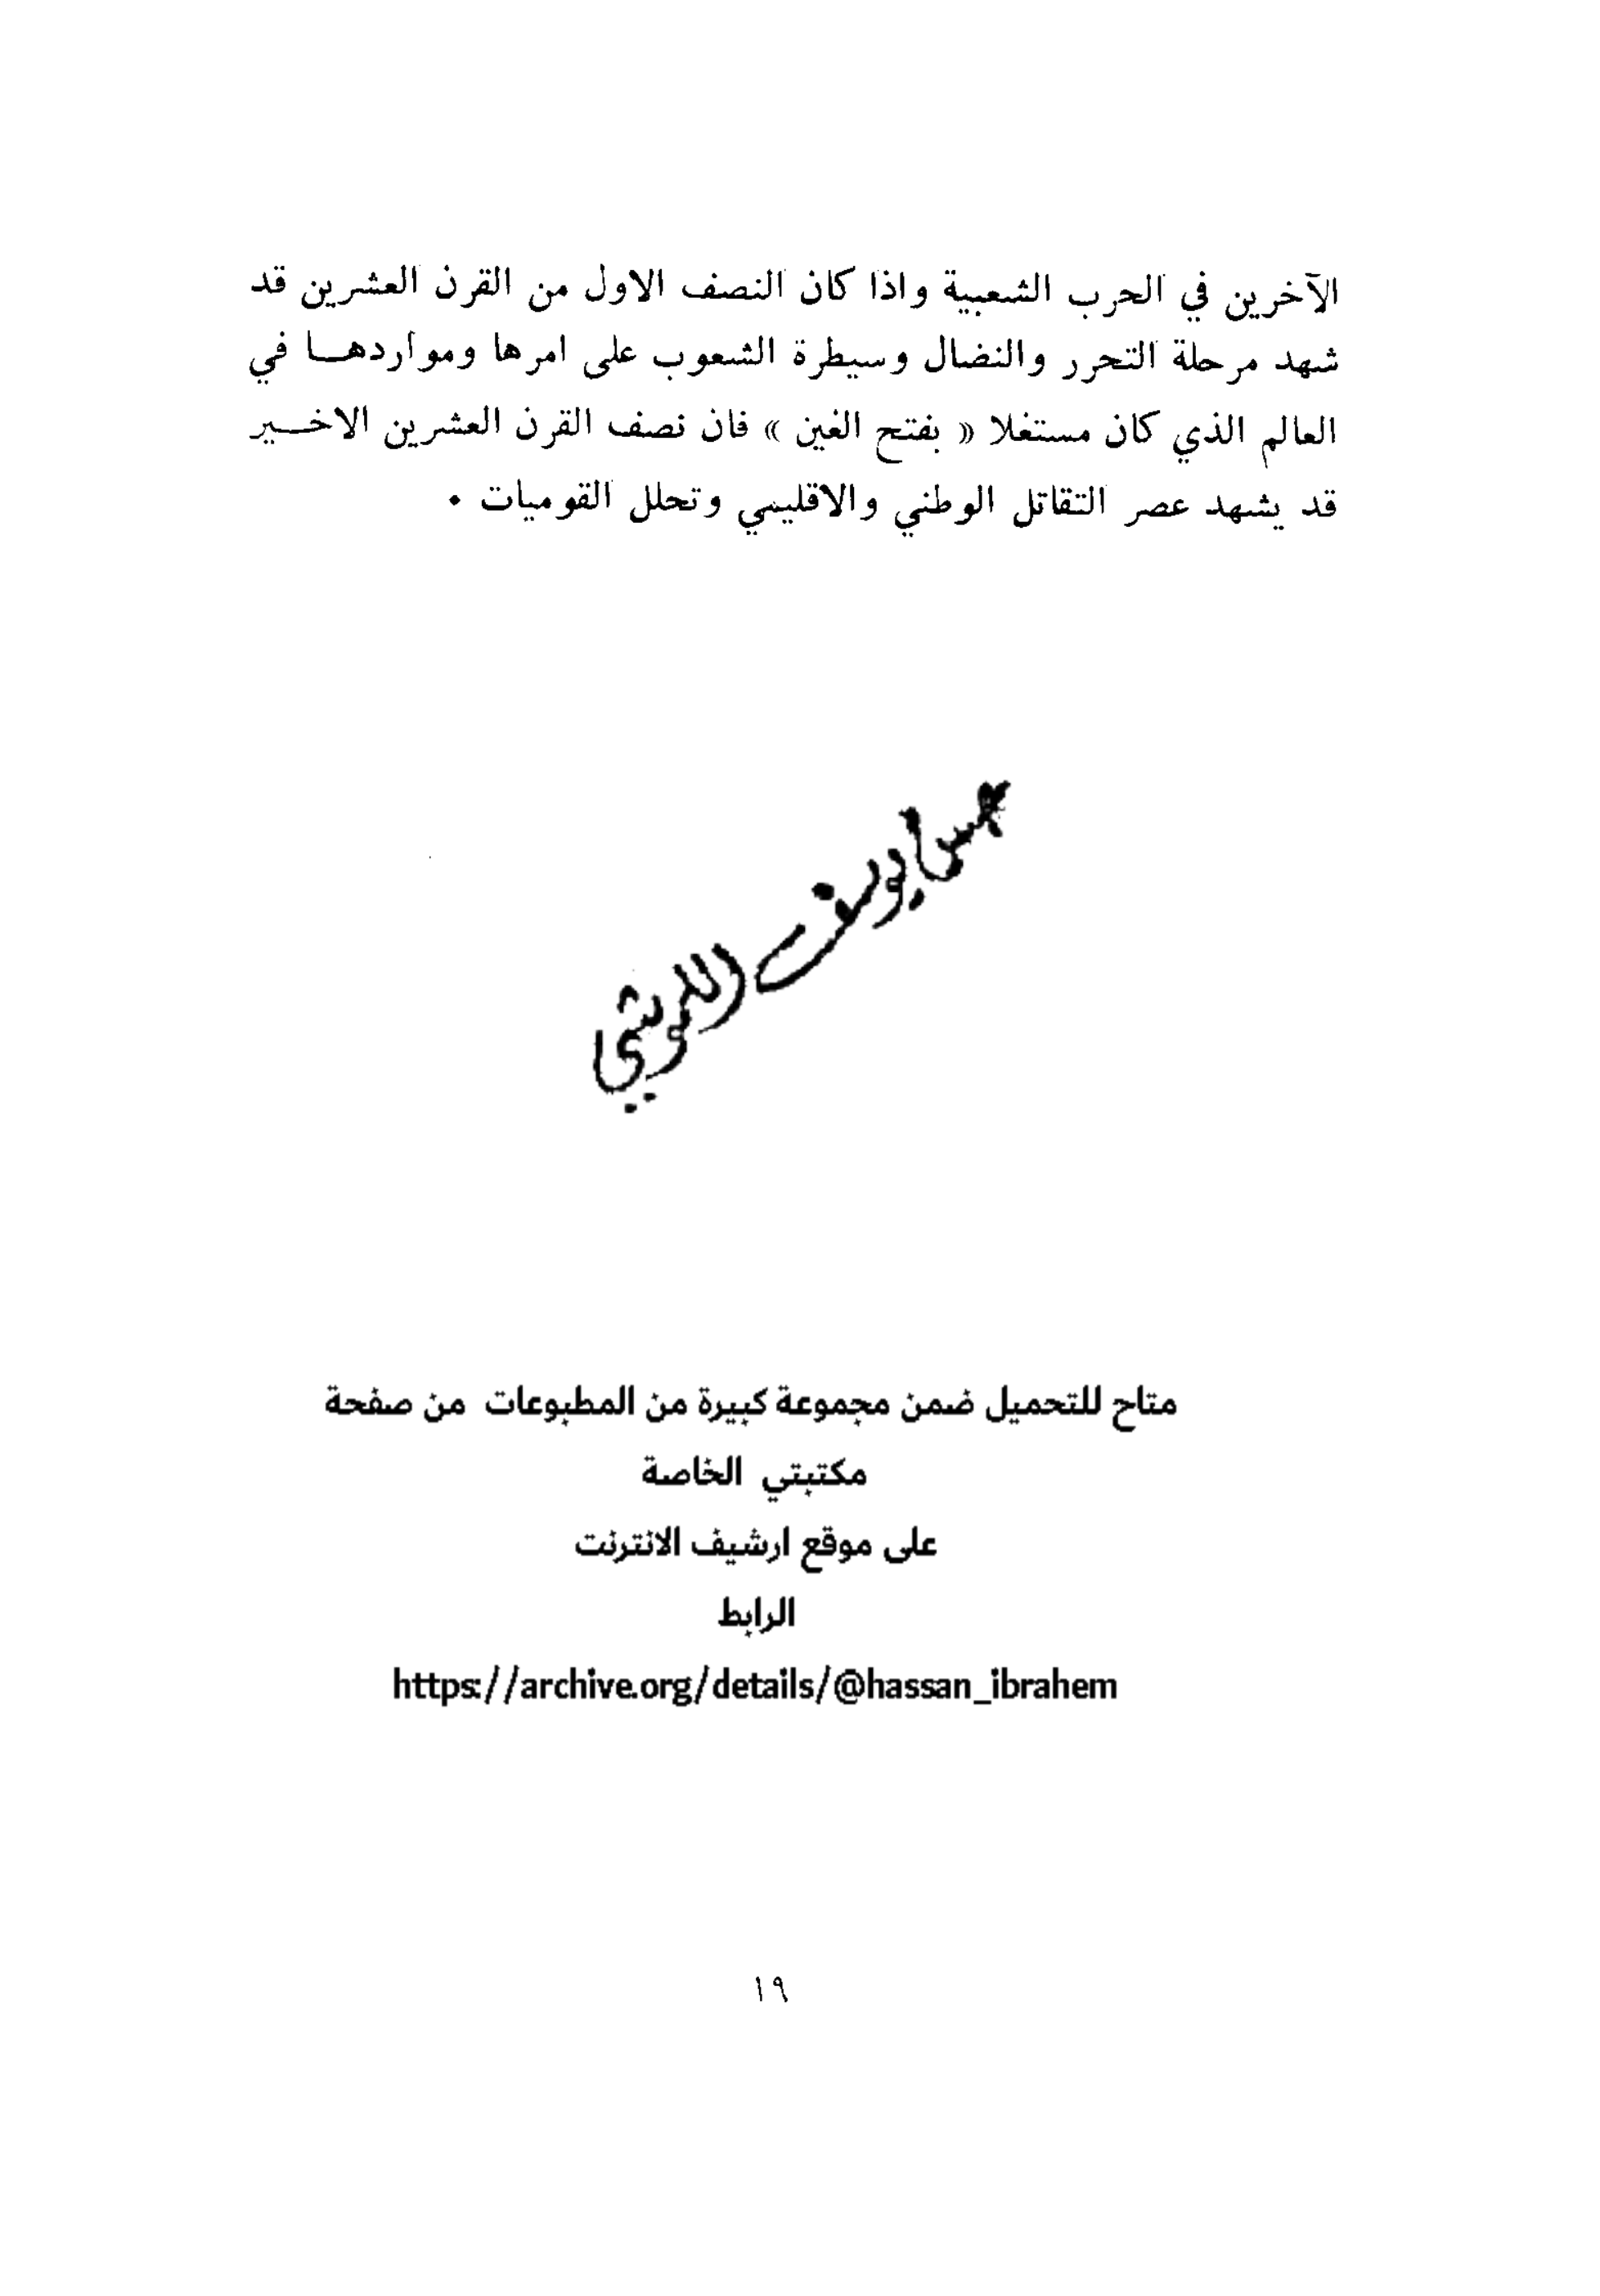 الآخرين في الحرب الشعبية واذا كان النصف الاول من القرن العشرين قد
شهد مرحلة التحرر والنضال وسيطرة الشعوب على امرها ومواردهـا في
العالم الذي كان مستغلا « بفتح الغين » فان نصف القرن العشرين الاخـير
قد يشهد عصر التقاتل الوطني والاقليمي وتحلل القوميات .
يوسف
متاح للتحميل ضمن مجموعة كبيرة من المطبوعات من صفحة
مكتبتي الخاصة
على موقع ارشيف الانترنت
الرابط
https://archive.org/details/@hassan_ibrahem
١٩